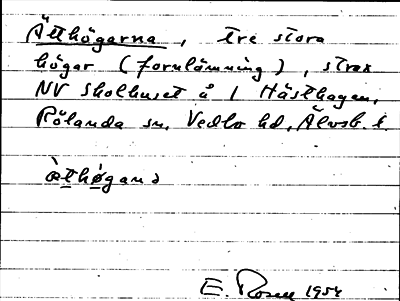 Ätthögarna, tre stora
högar (fornlämning), strax
NV skolhuset å 1 Hästhagen,
Rölanda sn, Vedbo hd, Älvsb. l.
æ̀thø̀gaṇa
E. Rosell 1954